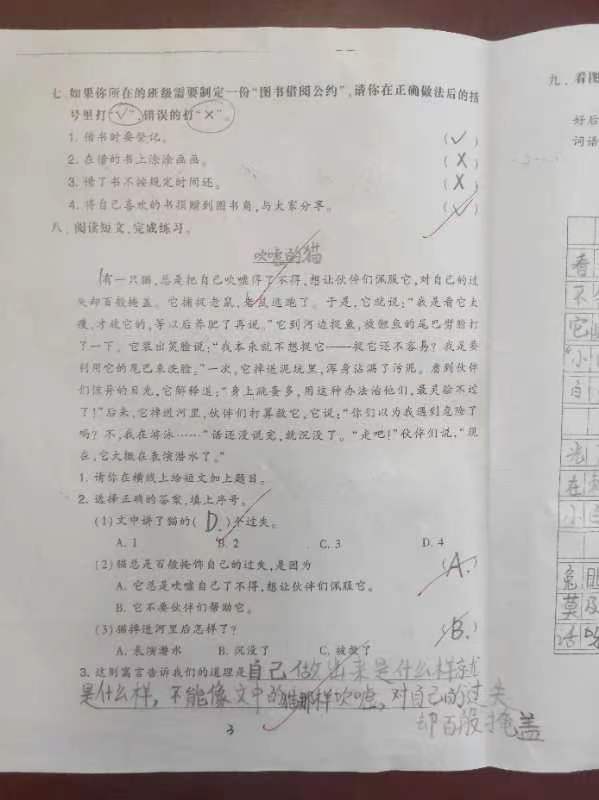 七、如果你所在的班级需要制定一份“图书借阅公约”,请你在正确做法后的括
号里打“✓”,错误的打“×”。
1. 借书时要登记。 (✓)
2. 在借的书上涂涂画画。 (X)
3. 借了书不按规定时间还。 (X)
4. 将自己喜欢的书捐赠到图书角,与大家分享。 (✓)
八、阅读短文,完成练习。
吹嘘的猫
有一只猫,总是把自己吹嘘得了不得,想让伙伴们佩服它,对自己的过
失却百般掩盖。它捕捉老鼠,老鼠逃跑了。于是,它就说:“我是看它太
瘦,才放它的,等以后养肥了再说。”它到河边捉鱼,被鲤鱼的尾巴劈脸打
了一下。它装出笑脸说:“我本来就不想捉它——捉它还不容易?我是要
利用它的尾巴来洗脸。”一次,它掉进泥坑里,浑身沾满了污泥。看到伙伴
们惊异的目光,它解释道:“身上跳蚤多,用这种办法治他们,最灵验不过
了!”后来,它掉进河里,伙伴们打算救它,它说:“你们以为我遇到危险了
吗?不,我在游泳……”话还没说完,就沉没了。“走吧!”伙伴们说,“现
在,它大概在表演潜水了。”
1. 请你在横线上给短文加上题目。
2. 选择正确的答案,填上序号。
(1)文中讲了猫的( D. )个过失。
A. 1 B. 2 C. 3 D. 4
(2)猫总是百般掩饰自己的过失,是因为 (A.)
A. 它总是吹嘘自己了不得,想让伙伴们佩服它。
B. 它不要伙伴们帮助它。
(3)猫掉进河里后怎样了? (B.)
A. 表演潜水 B. 沉没了 C. 被救了
3. 这则寓言告诉我们的道理是自己做出来是什么样就
是什么样,不能像文中的猫那样吹嘘,对自己的过失
却百般掩盖
3
九、看图
好后
词语
看
不
它
“小
白
光
在
小白
兔眼
莫及
话